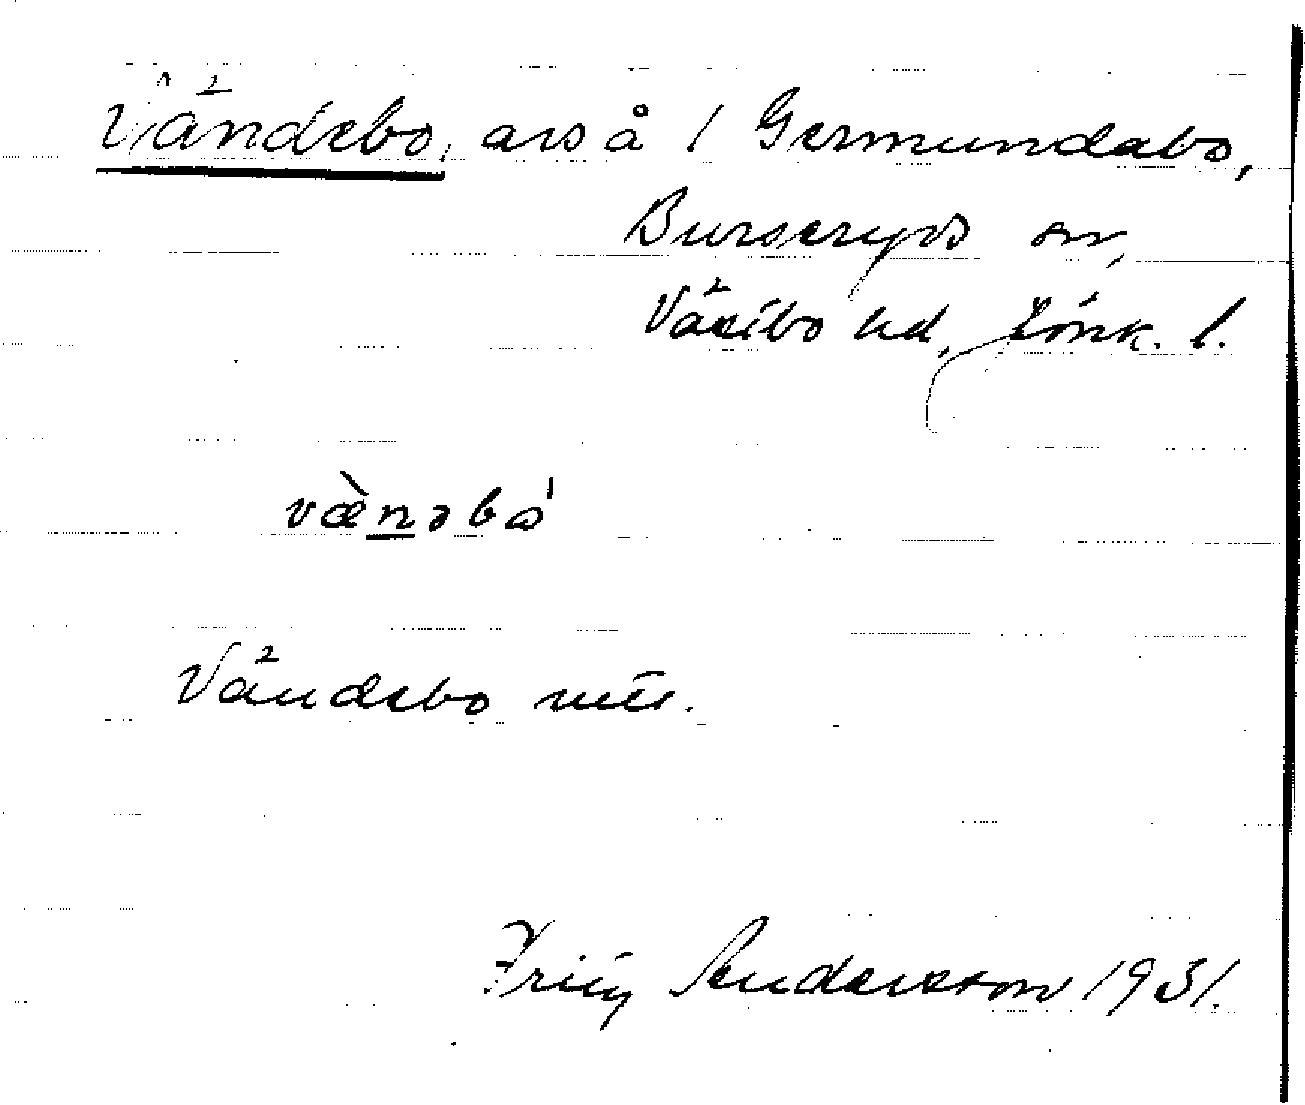 Vändebo, avs å / Germundabo,
Burseryds sn,
Västbo hd, Jönk. l.
vænəbω
Vändebo
Andersson 1931.